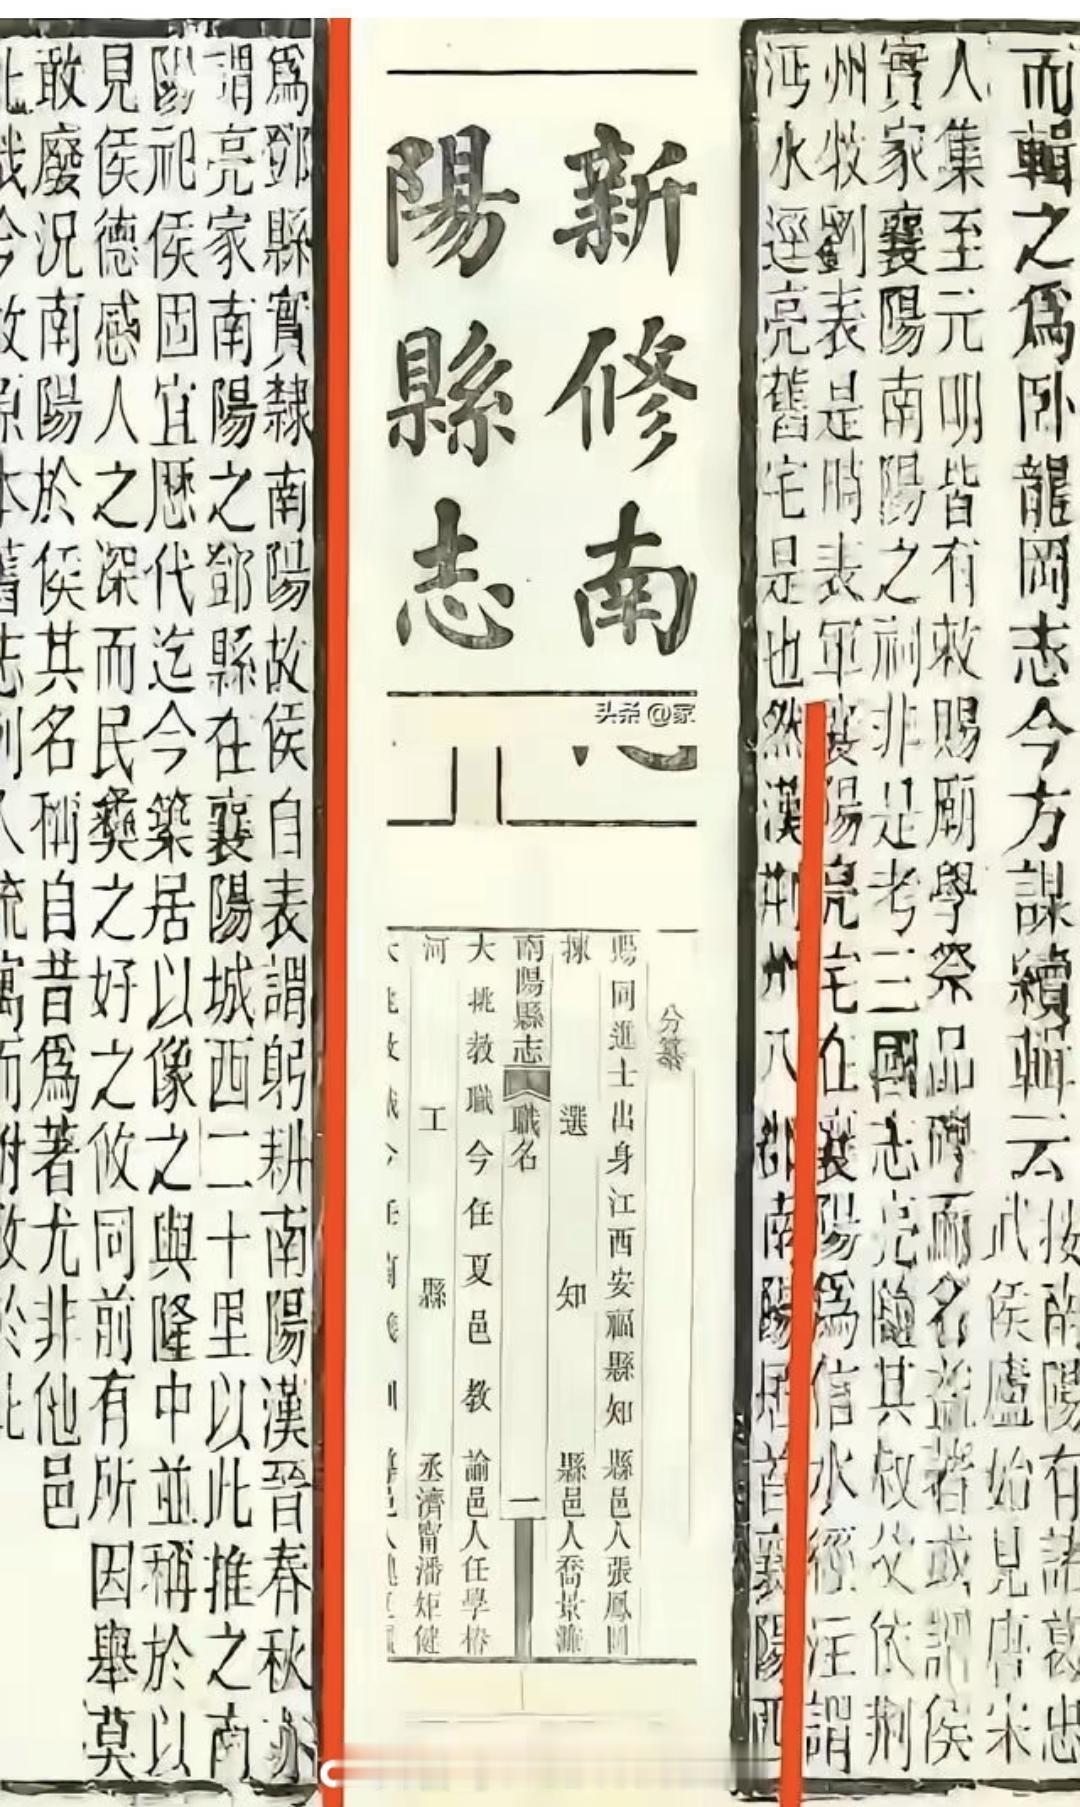 而輯之爲卧龍岡志今方謀續輯云
按南陽有諸葛忠
武侯廬始見唐宋
人集至元明皆有敕賜廟學祭品碑而名益著或謂侯
實家襄陽南陽之祠非是考三國志亮隨其叔父依荆
州牧劉表是時表軍襄陽亮宅在襄陽爲信水經注謂
沔水逕亮舊宅是也然漢荆州八郡南陽居首襄陽西
新修南
陽縣志
头条 @家
分纂
賜同進士出身江西安福縣知縣邑人張鳳岡
揀選知縣邑人喬景濂
南陽縣志 職名 一
大挑教職今任夏邑教諭邑人任學椿
河工縣丞濟甯潘矩健
爲鄧縣實隸南陽故侯自表謂躬耕南陽漢晉春秋亦
謂亮家南陽之鄧縣在襄陽城西二十里以此推之南
陽祀侯固宜歷代迄今築居以像之與隆中並稱於以
見侯德感人之深而民彝之好之攸同前有所因舉莫
敢廢況南陽於侯其名稱自昔爲著尤非他邑